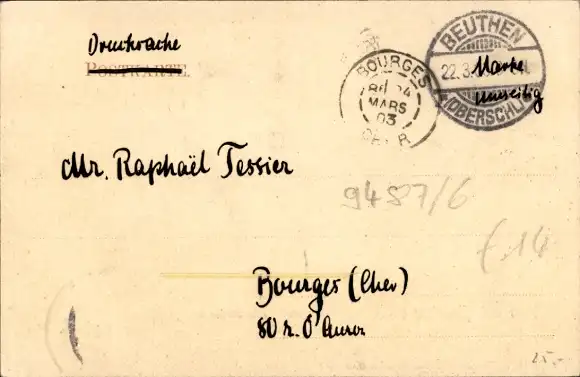 Drucksache
POSTKARTE
BEUTHEN
22.3.
(OBERSCHL.)
Marke
umseitig
BOURGES
MARS
03
CHER
Mr. Raphaël Tessier
9487/6
€14
Bourges (Cher)
80 r. d'Auron
25,-